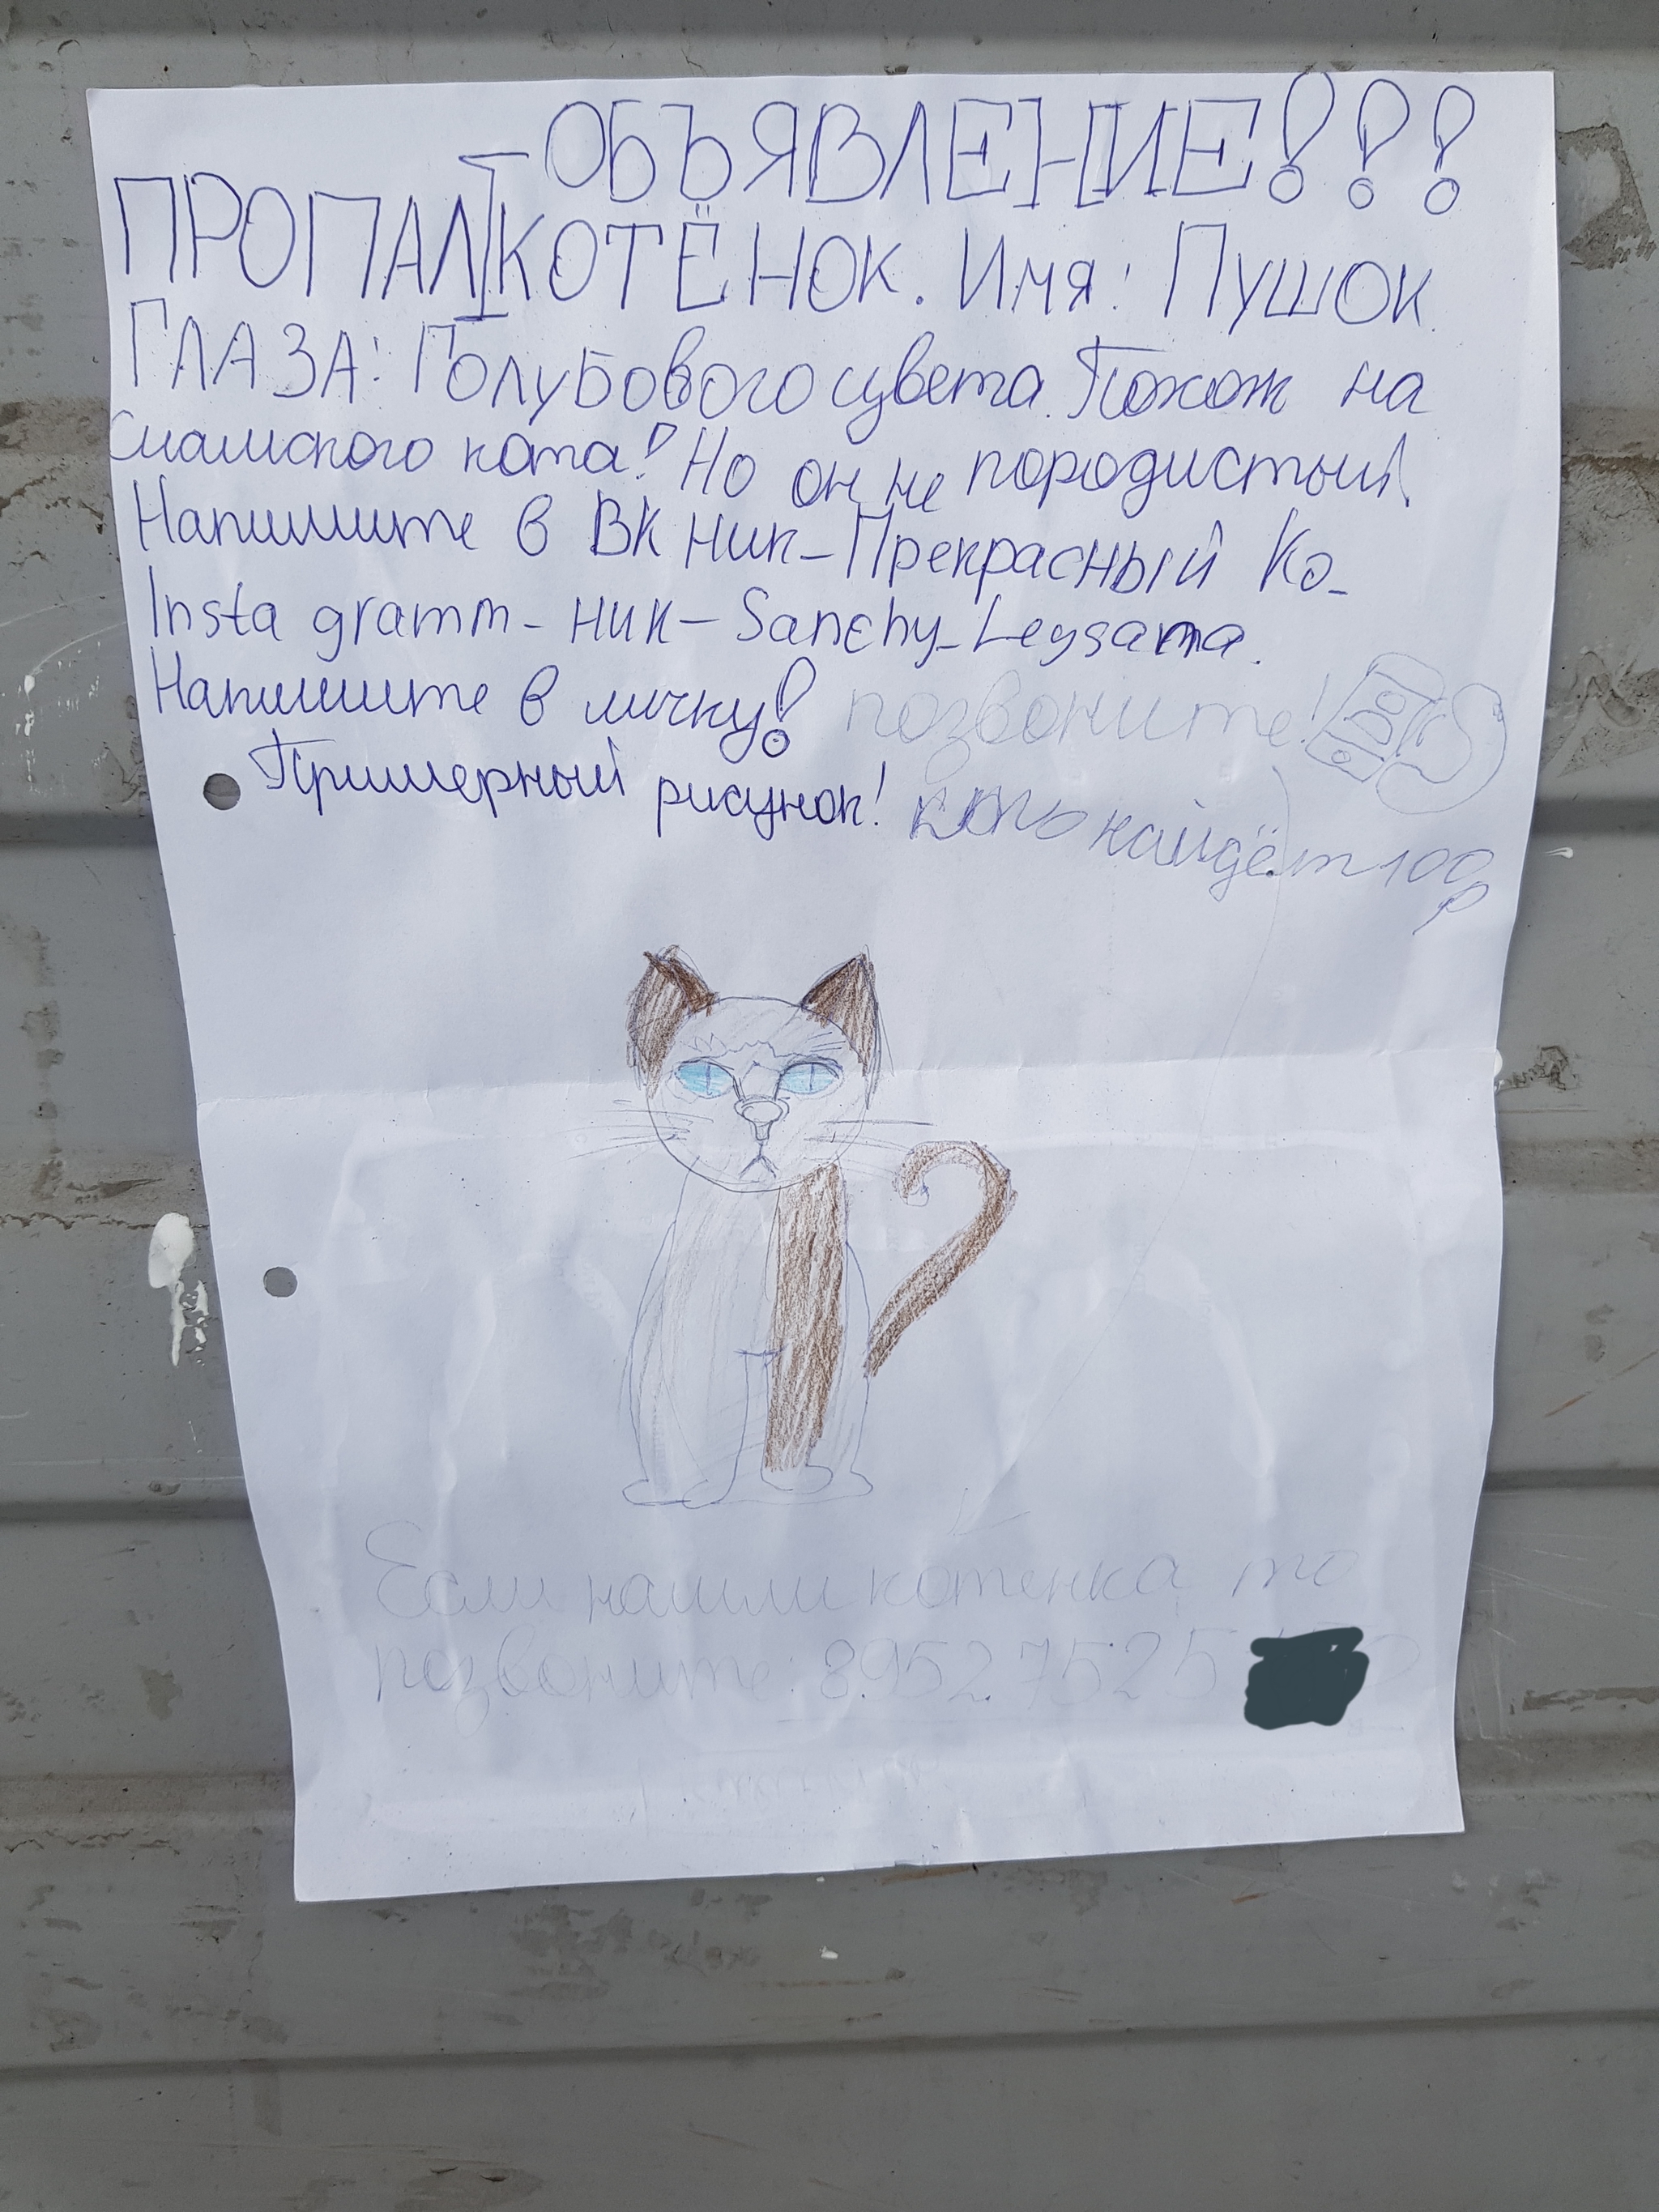 ОБЪЯВЛЕНИЕ!!!
ПРОПАЛ КОТЁНОК. Имя: Пушок.
ГЛАЗА: Голубового цвета. Похож на
сиамского кота! Но он не породистый.
Напишите в ВК ник-Прекрасный Ко-
Instagramm-ник-Sanchy_Leysama.
Напишите в личку! позвоните!
Примерный рисунок! найдёт 100р
Если нашли котенка то
позвоните: 8.952.7525